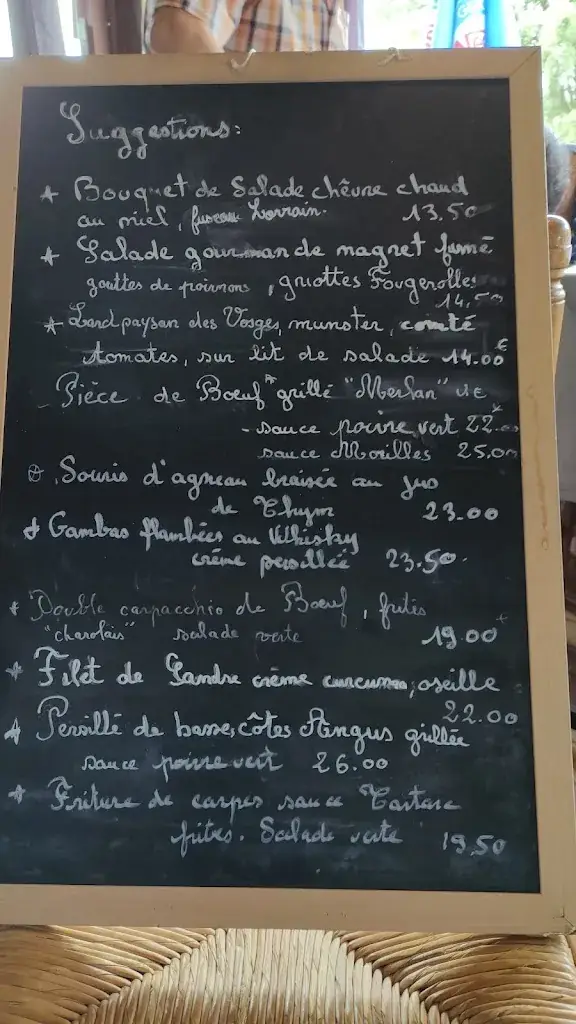 Suggestions:
★ Bouquet de Salade chèvre chaud
au miel, fuseau Lorrain. 13.50
★ Salade gourmande magret fumé
gouttes de poivrons, griottes Fougerolles
14,50
★ Lard paysan des Vosges, munster, comté
tomates, sur lit de salade 14.00€
Pièce de Boeuf grillé "Merlan"
- sauce poivre vert 22.00
sauce Morilles 25.00
Souris d'agneau braisée au jus
de Thym 23.00
Gambas flambées au Whisky
crème persillée 23.50.
★ Double carpacchio de Boeuf, frites
"charolais" salade verte 19.00
★ Filet de Sandre crème curcuma, oseille
22.00
★ Persillé de basse, côtes Angus grillée
sauce poivre vert 26.00
★ Friture de carpes sauce Tartare
frites. Salade verte 19,50